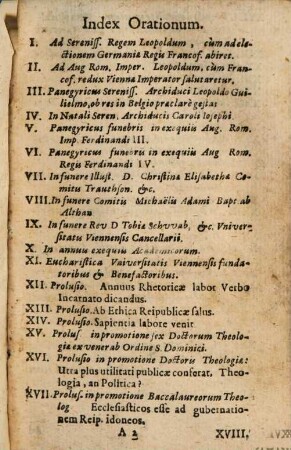 Index Orationum.
I. Ad Sereniss. Regem Leopoldum, cùm ad ele-
ctionem Germaniæ Regis Francof. abiret.
II. Ad Aug Rom. Imper. Leopoldum, cùm Fran-
cof. redux Viennæ Imperator salutaretur.
III. Panegyricus Sereniss. Archiduci Leopoldo Gui-
lielmo, ob res in Belgio præclarè gestas
IV. In Natali Seren. Archiducis Caroli Iosephi
V. Panegyricus funebris in exequiis Aug. Rom.
Imp. Ferdinandi III.
VI. Panegyricus funebris in exequiis Aug Rom.
Regis Ferdinandi IV.
VII. In funere Illust. D. Christinæ Elisabethæ Co-
mitis Trauthson. &c.
VIII. In funere Comitis Michaëlis Adami Bapt. ab
Althan
IX. In funere Rev D Tobiæ Schvvab, &c. Vniver-
sitatis Viennensis Cancellarii.
X. In annuis exequiis Academicorum.
XI. Eucharistica Vniversitatis Viennensis funda-
toribus & Benefactoribus.
XII. Prolusio. Annuus Rhetoricæ labor Verbo
Incarnato dicandus.
XIII. Prolusio. Ab Ethica Reipublicæ salus.
XIV. Prolusio. Sapientia labore venit
XV. Prolus. in promotione sex Doctorum Theolo-
giæ ex venerab Ordine S. Dominici.
XVI. Prolusio in promotione Doctoris Theologiæ:
Utra plus utilitati publicæ conferat. Theo-
logia, an Politica?
XVII. Prolus. in promotione Baccalaureorum Theo-
log Ecclesiasticos esse ad gubernatio-
nem Reip. idoneos.
A 2 XVIII.